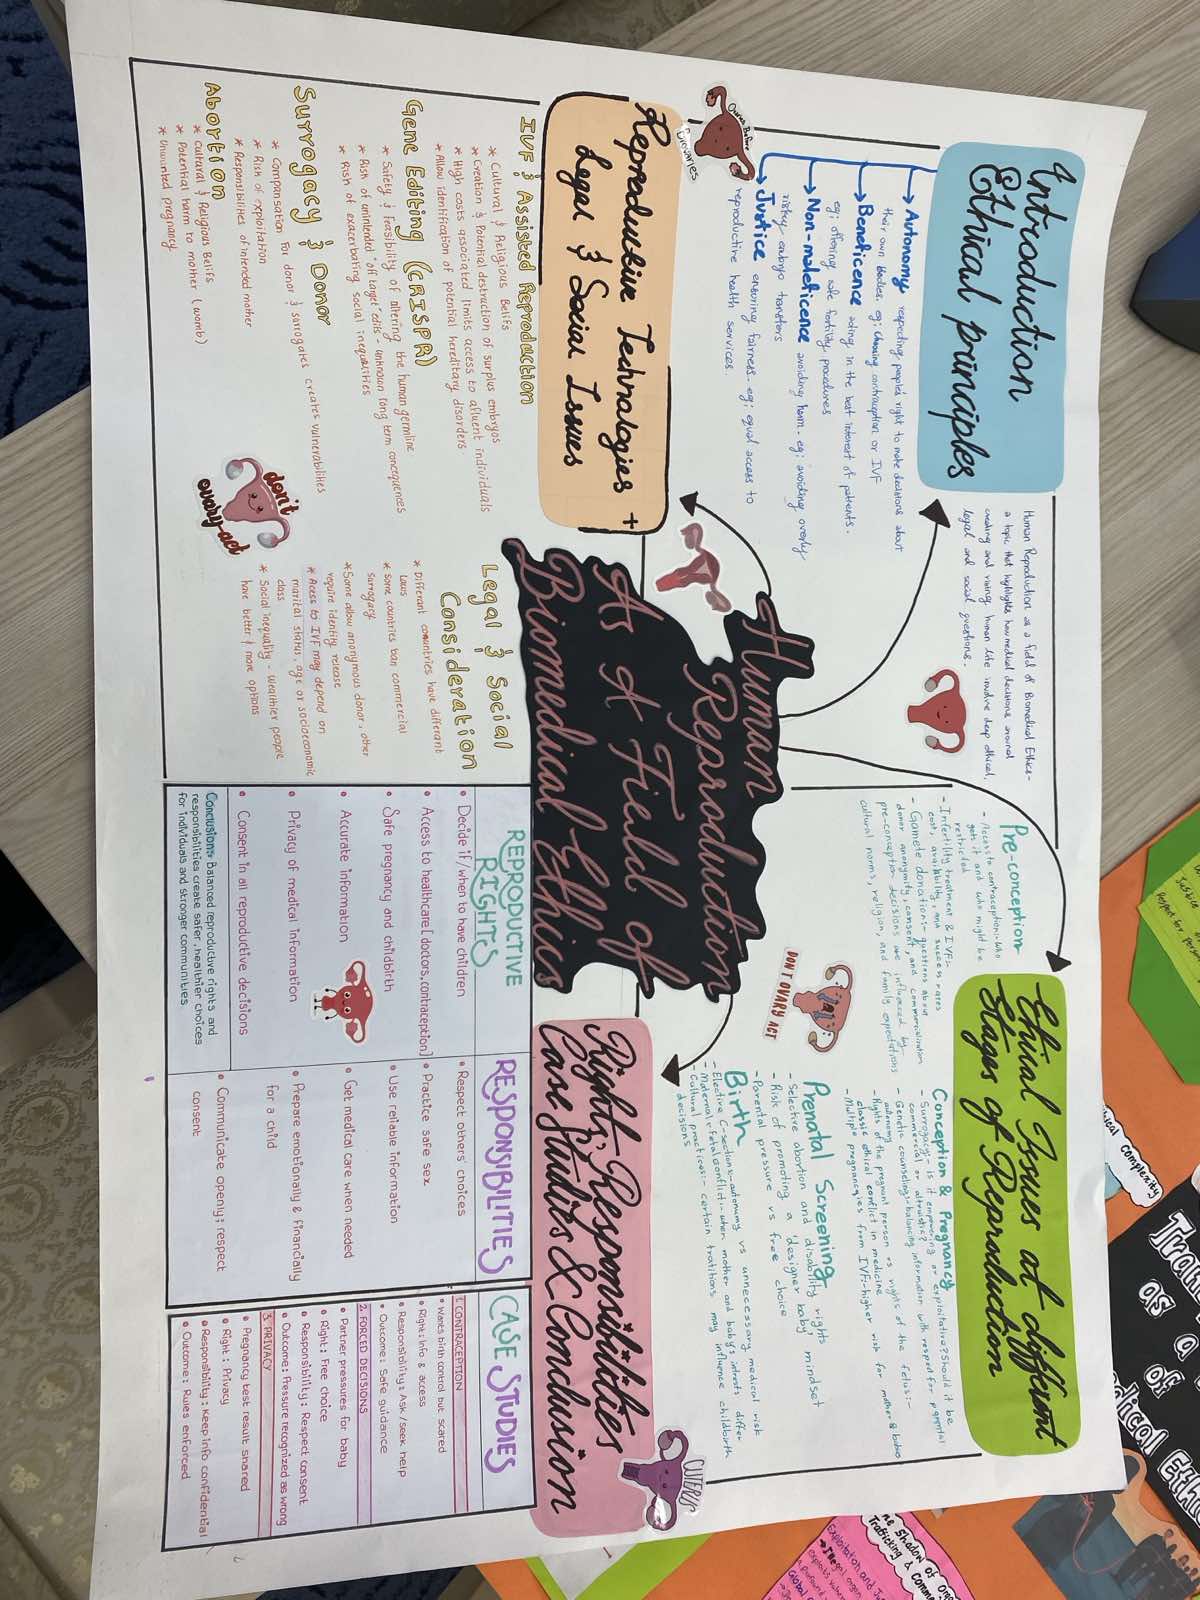 Introduction
Ethical principles
Human Reproduction as a field of Biomedical Ethics-
a topic that highlights how medical decisions around
creating and raising human life involve deep ethical,
legal and social questions.
Autonomy respecting people's right to make decisions about
their own bodies. eg; choosing contraception or IVF
Beneficence acting in the best interest of patients.
eg; offering safe fertility procedures
Non-maleficence avoiding harm - eg; avoiding overly
risky embryo transfers
Justice ensuring fairness - eg; equal access to
reproductive health services.
Ovaries Before
Brovaries
Ethical Issues at diffirent
Stages of Reproduction
Pre-conception
- Access to contraception:-who
gets it and who might be
restricted
- Infertility treatment & IVF:-
cost, availability, and success rates
- Gamete donation:- questions about
donor anonymity, consent and commercialization
pre-conception decisions are influenced by-
cultural norms, religion, and family expectations
Conception & Pregnancy
- Surrogacy:- is it empowering or exploitative? Should it be
commercial or altruistic?
- Genetic counseling:- balancing information with respect for parental
autonomy
- Rights of the pregnant person vs rights of the fetus:-
classic ethical conflict in medicine
- Multiple pregnancies from IVF:- higher risk for mother & babies
Prenatal Screening
- Selective abortion and disability rights
- Risk of promoting a 'designer baby' mindset
- Parental pressure vs free choice
Birth
- Elective C-sections:- autonomy vs unnecessary medical risk
- Maternal-fetal conflict:- when mother and baby's intrests differ
- Cultural practices:- certain traditions may influence childbirth
decisions
DON'T OVARY ACT
Human
Reproduction
As A Field of
Biomedical Ethics
Reproductive Technologies +
Legal & Social Issues
IVF & Assisted Reproduction
* Cultural & Religious Belifs
* Creation & Potential destruction of surplus embryos
* High costs associated limits access to afluent individuals
* Allow identification of potential hereditary disorders.
Gene Editing (CRISPR)
* Safety & Feasibility of altering the human germline
* Risk of unintended "off target" edits - unknown long term conceqences
* Risk of exacerbating social inequalities
Surrogacy & Donor
* Compensation for donor & surrogates creates vulnerabilities
* Risk of exploitation
* Responsibilities of intended mother
Abortion
* Cultural & Religious Belifs
* Potential harm to mother (womb)
* Unwanted pregnancy
don't
ovary-act
Legal & Social
Consideration
* Different countries have different
laws
* Some countries ban commercial
surrogacy
* Some allow anonymous donor, other
require identity release
* Access to IVF may depend on
marital status, age or socioeconomic
class
* Social inequality - wealthier people
have better & more options
Rights, Responsibilities
Case Studies & Conclusion
CUTERUS
REPRODUCTIVE
RIGHTS
• Decide if/when to have children
• Access to healthcare [doctors, contraception]
• Safe pregnancy and childbirth
• Accurate information
• Privacy of medical information
• Consent in all reproductive decisions
Conclusion:- Balanced reproductive rights and
responsibilities create safer, healthier choices
for individuals and stronger communities
RESPONSIBILITIES
• Respect others' choices
• Practice safe sex
• Use reliable information
• Get medical care when needed
• Prepare emotionally & financially
for a child
• Communicate openly; respect
consent
CASE STUDIES
1. CONTRACEPTION
• Wants birth control but scared
• Right: Info & access
• Responsibility: Ask / seek help
• Outcome: Safe guidance
2. FORCED DECISIONS
• Partner pressures for baby
• Right: Free choice
• Responsibility: Respect consent
• Outcome: Pressure recognized as wrong
3. PRIVACY
• Pregnancy test result shared
• Right: Privacy
• Responsibility: Keep info confidential
• Outcome: Rules enforced
Justice
Respect for
complexity
as a
of
Trafficking & comme
Exploitation and
Global